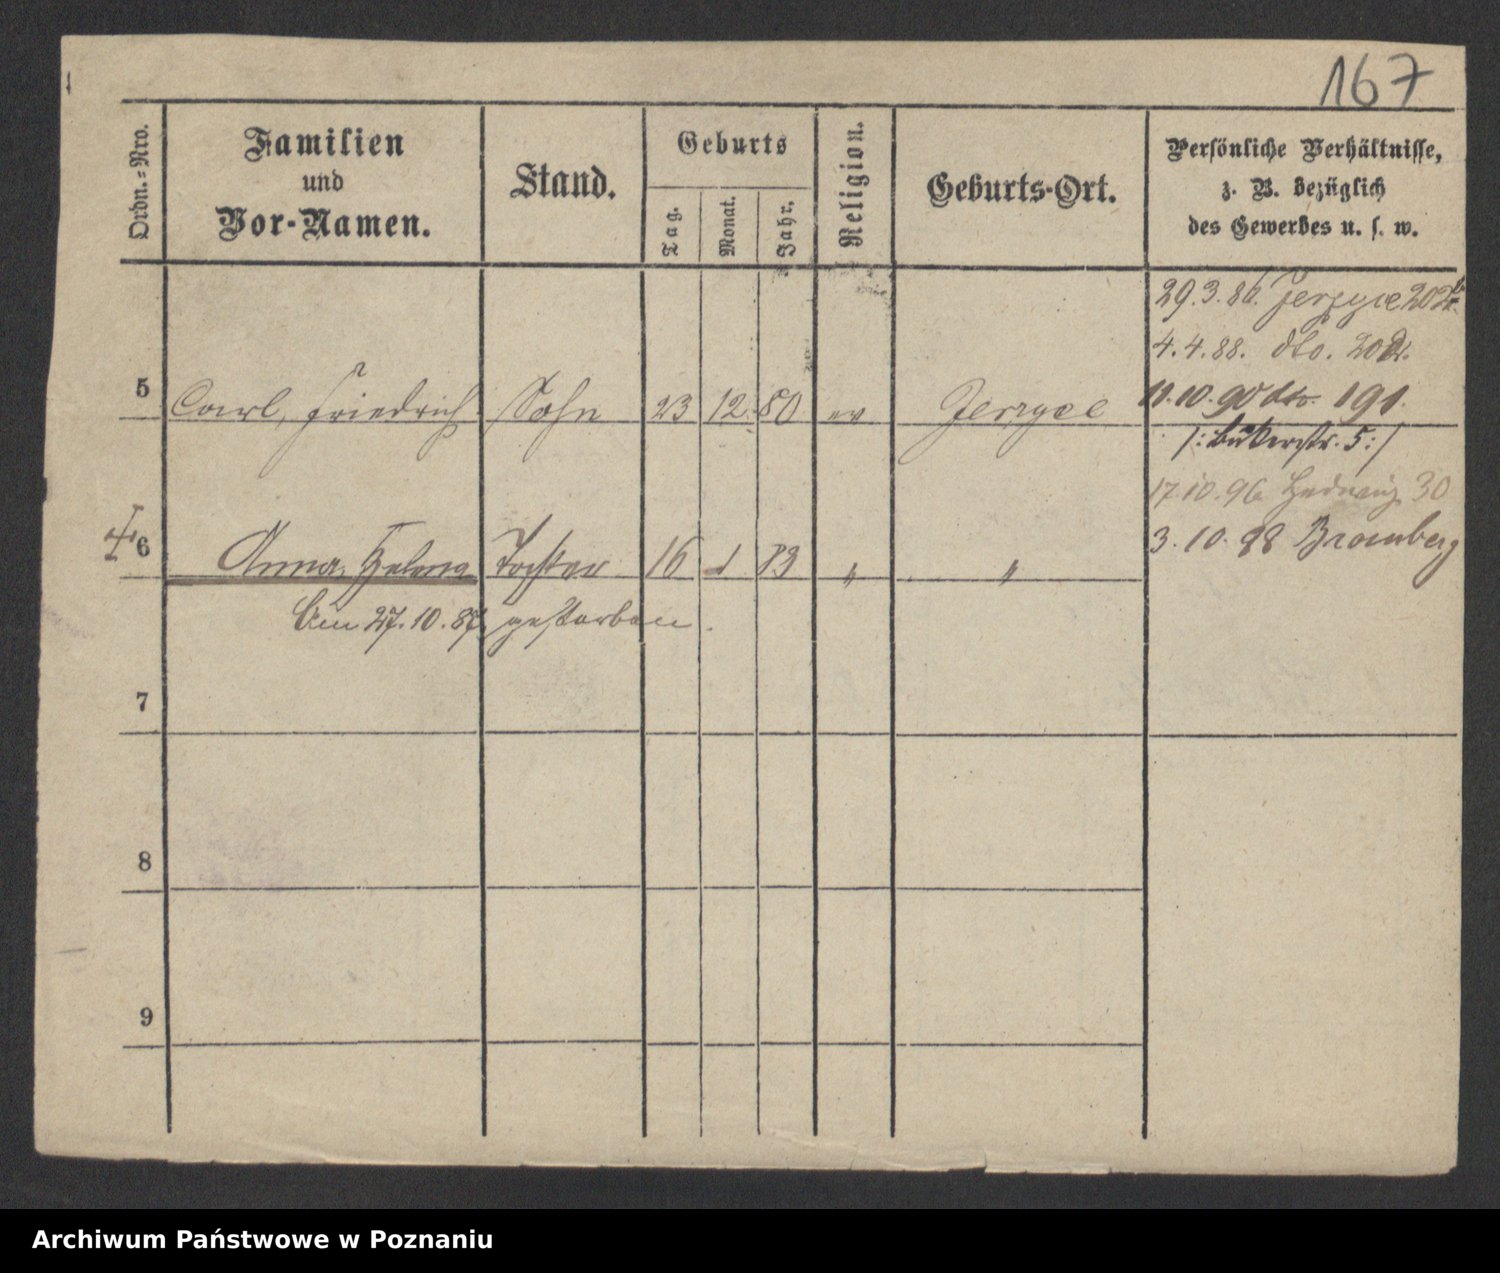 167
Ordn.-Nro.
Familien
und
Vor-Namen.
Stand.
Geburts
Tag.
Monat.
Jahr.
Religion.
Geburts-Ort.
Persönliche Verhältnisse,
z. B. bezüglich
des Gewerbes u. s. w.
29.3.86. Jerzyce 202
4.4.88. dto. 20
5 Carl, Friedrich Sohn 23 12 80 ev Jerzyce
11.10.90 dto. 191.
/: Bukerstr. 5 :/
17.10.96 Hedwig 30
3.10.98 Bromberg
6 Anna, Helena Tochter 16 1 83 " "
Am 27.10.87 gestorben.
7
8
9
Archiwum Państwowe w Poznaniu